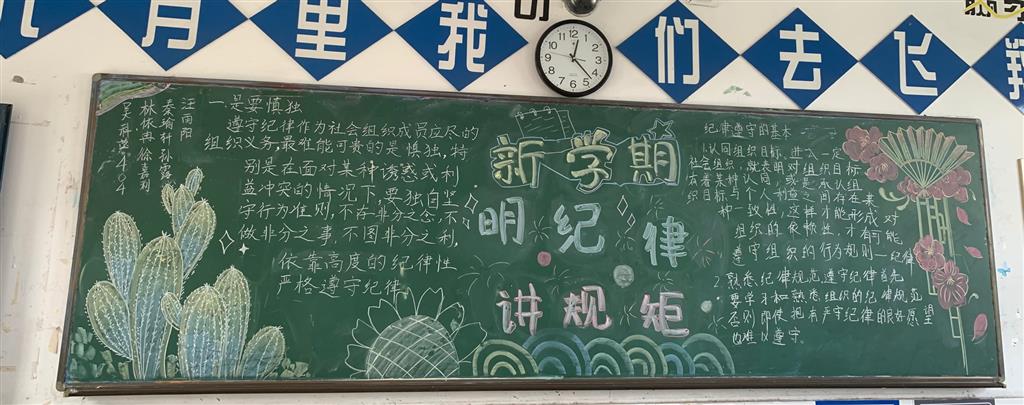 月里我们去飞翔
12
1
2
3
4
5
6
7
8
9
10
11
汪雨阳
吴 404
一是要慎独
遵守纪律作为社会组织成员应尽的
组织义务,最难能可贵的是慎独,特
别是在面对某种诱惑或利
益冲突的情况下,要独自坚
守行为准则,不存非分之念,不
做非分之事,不图非分之利,
依靠高度的纪律性
严格遵守纪律。
新学期
明纪律
讲规矩
纪律遵守的基本
1.认同组织目标,进入一定
社会组织,就表明对组织目标
织目标与个人利益之间存在某
种一致性,这样才能形成对
组织的依赖性,才有可能
遵守组织的行为规则—纪律
2.熟悉纪律规范遵守纪律首先
要学习和熟悉组织的纪律规范
否则即使抱有严守纪律的良好愿望
也难以遵守。